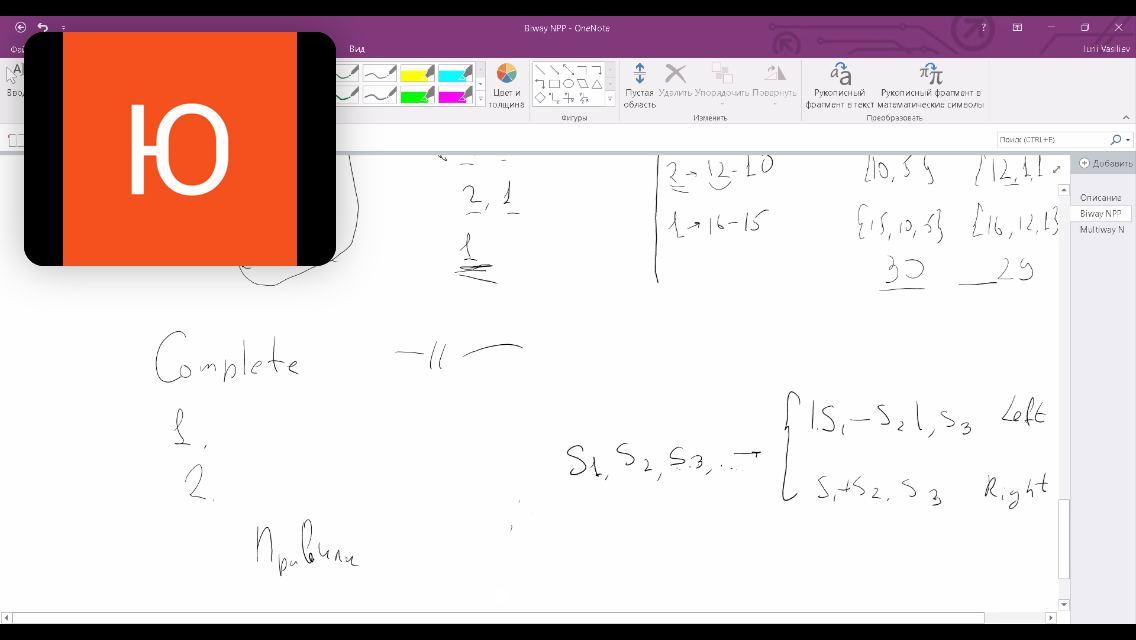 Biway NPP - OneNote
?
Iurii Vasiliev
Вид
Ю
Цвет и толщина
Фигуры
Пустая область
Удалить
Упорядочить
Повернуть
Изменить
Рукописный фрагмент в текст
Рукописный фрагмент в математические символы
Преобразовать
Поиск (CTRL+E)
Добавить
Описание
Biway NPP
Multiway N
2, 1
1
2 → 12-10
{10, 5}
{12, 1}
1 → 16-15
{15, 10, 5}
{16, 12, 1}
30
29
Complete —//—
1.
2.
S1, S2, S3, ... →
|S1 - S2|, S3 Left
S1+S2, S3 Right